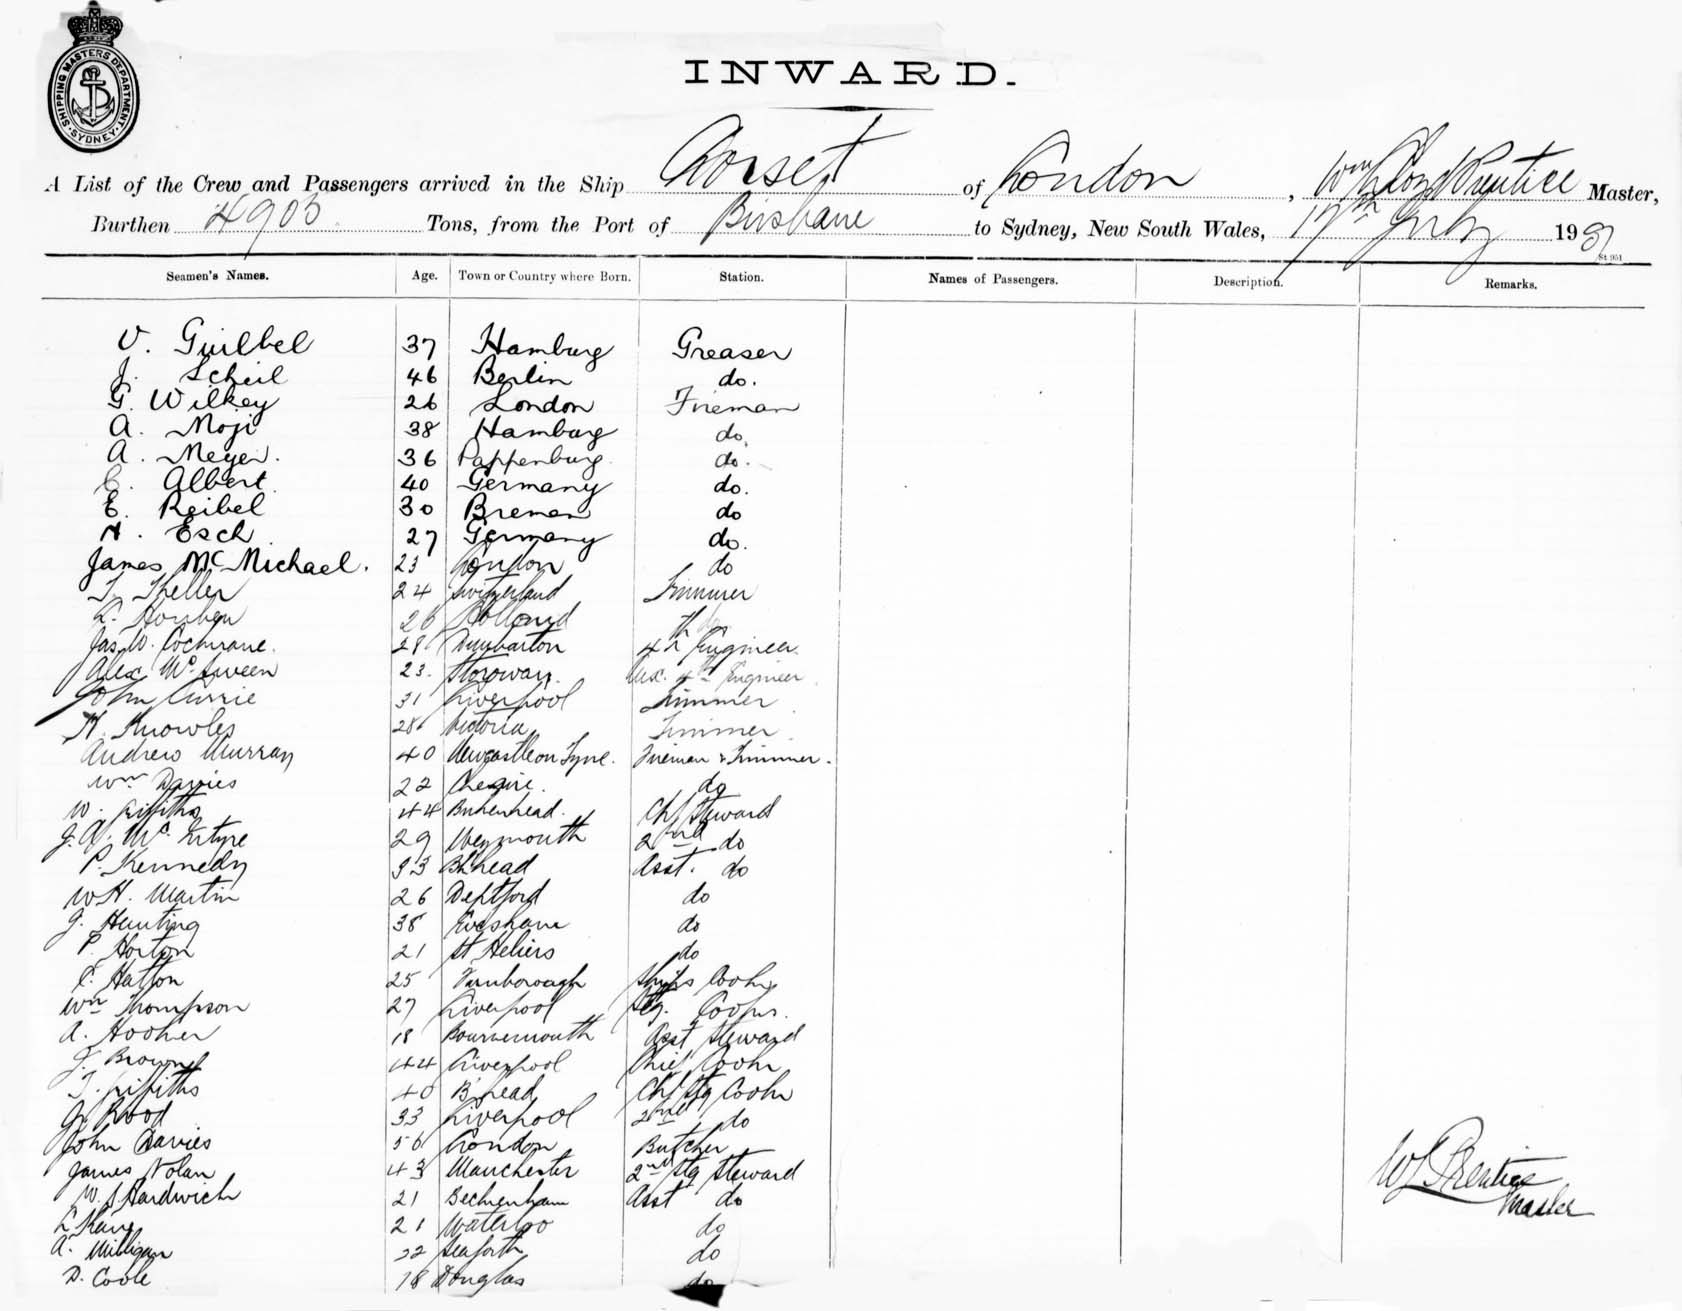 SHIPPING MASTERS DEPARTMENT
SYDNEY
INWARD.
A List of the Crew and Passengers arrived in the Ship Dorset of London, Wm Prentice Master,
Burthen 4903 Tons, from the Port of Brisbane to Sydney, New South Wales, 17th July 19
St 951
Seamen's Names. Age. Town or Country where Born. Station. Names of Passengers. Description. Remarks.
V. Guilbel 37 Hamburg Greaser
J. Scheil 46 Berlin do.
G. Wilkey 26 London Fireman
A. Moji 38 Hamburg do.
A. Meyer. 36 Pappenburg do.
C. Albert 40 Germany do.
E. Reibel 30 Bremen do
H. Esch 27 Germany do.
James McMichael. 23 London do
T. Theller 24 Switzerland Trimmer
26 Holland do
Jas. W. Cochrane. 28 Dumbarton 4th Engineer
Alex McSween 23. Stornway. 4th Engineer
John Currie 31 Liverpool Trimmer
H. Knowles 28 Victoria Trimmer
Andrew Murray 40 Newcastle on Tyne. Fireman & Trimmer.
Wm Davies 22 do
W. Griffiths 44 Birkenhead. Chf Steward
J. A. McIntyre 29 Weymouth 2nd do
P. Kennedy 33 Bkhead Asst. do
W H. Martin 26 Deptford do
J. Hunting 38 Evesham do
P. Horton 21 St Heliers do
C. Hatton 25 Farnborough Ships Cook
Wm Thompson 27 Liverpool
A. Hooker 18 Bournemouth Asst Steward
J. Brown 44 Liverpool Chief Cook
T. Griffiths 40 B'head Chf Stg Cook
G. Wood 33 Liverpool 2nd do
John Davies 56 London Butcher
James Nolan 43 Manchester 2nd Stg Steward
W. J. Hardwich 21 Beckenham Asst do
L. Kane 21 Waterloo do
A. Milligan 22 Seaforth do
D. Coole 18 Douglas do
W L Prentice
Master